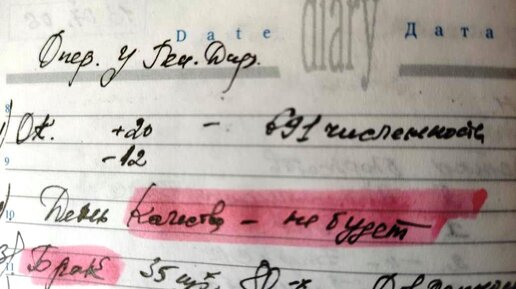 Date diary Дата
Опер. у Ген. Дир.
8
1) ОК. +20 - 691 численность
9 -12
10 День Качества - не будет
3) Брак 35 шт
11